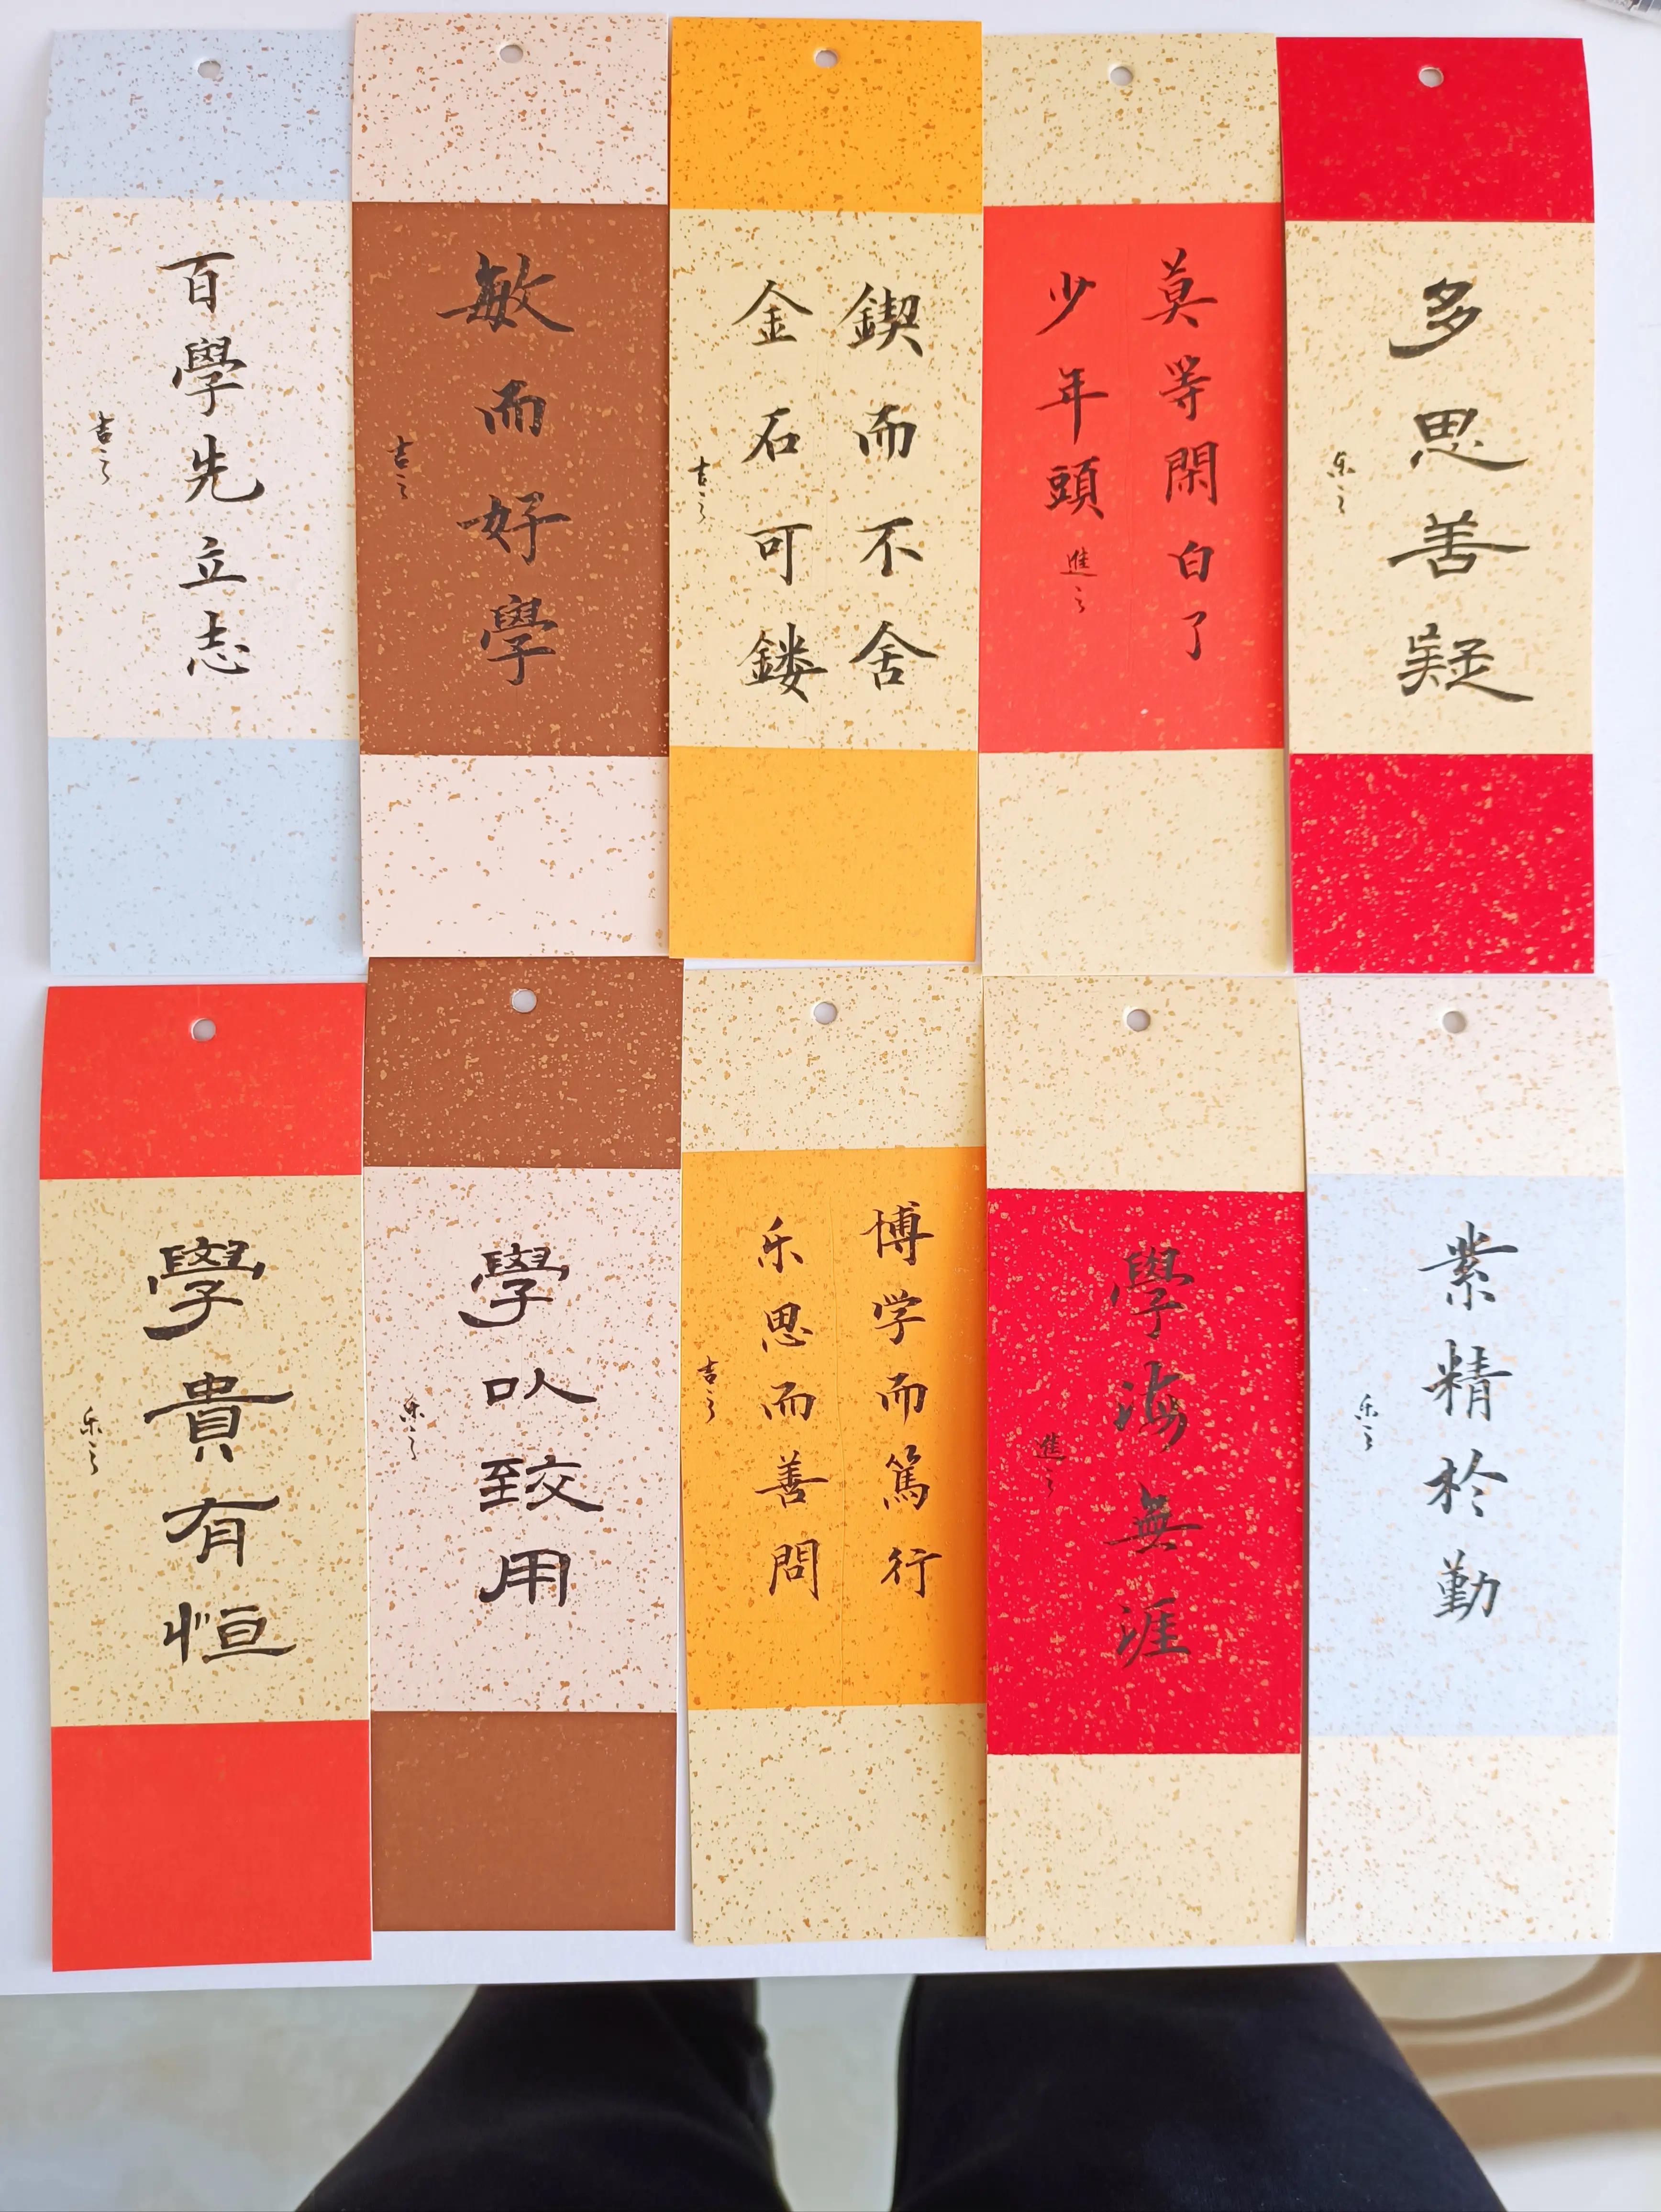 百學先立志
吉之
敏而好學
吉之
鍥而不舍
金石可鏤
吉之
莫等閑白了
少年頭
進之
多思善疑
乐之
學貴有恒
乐之
學以致用
乐之
博学而篤行
乐思而善問
吉之
學海無涯
進之
業精於勤
乐之